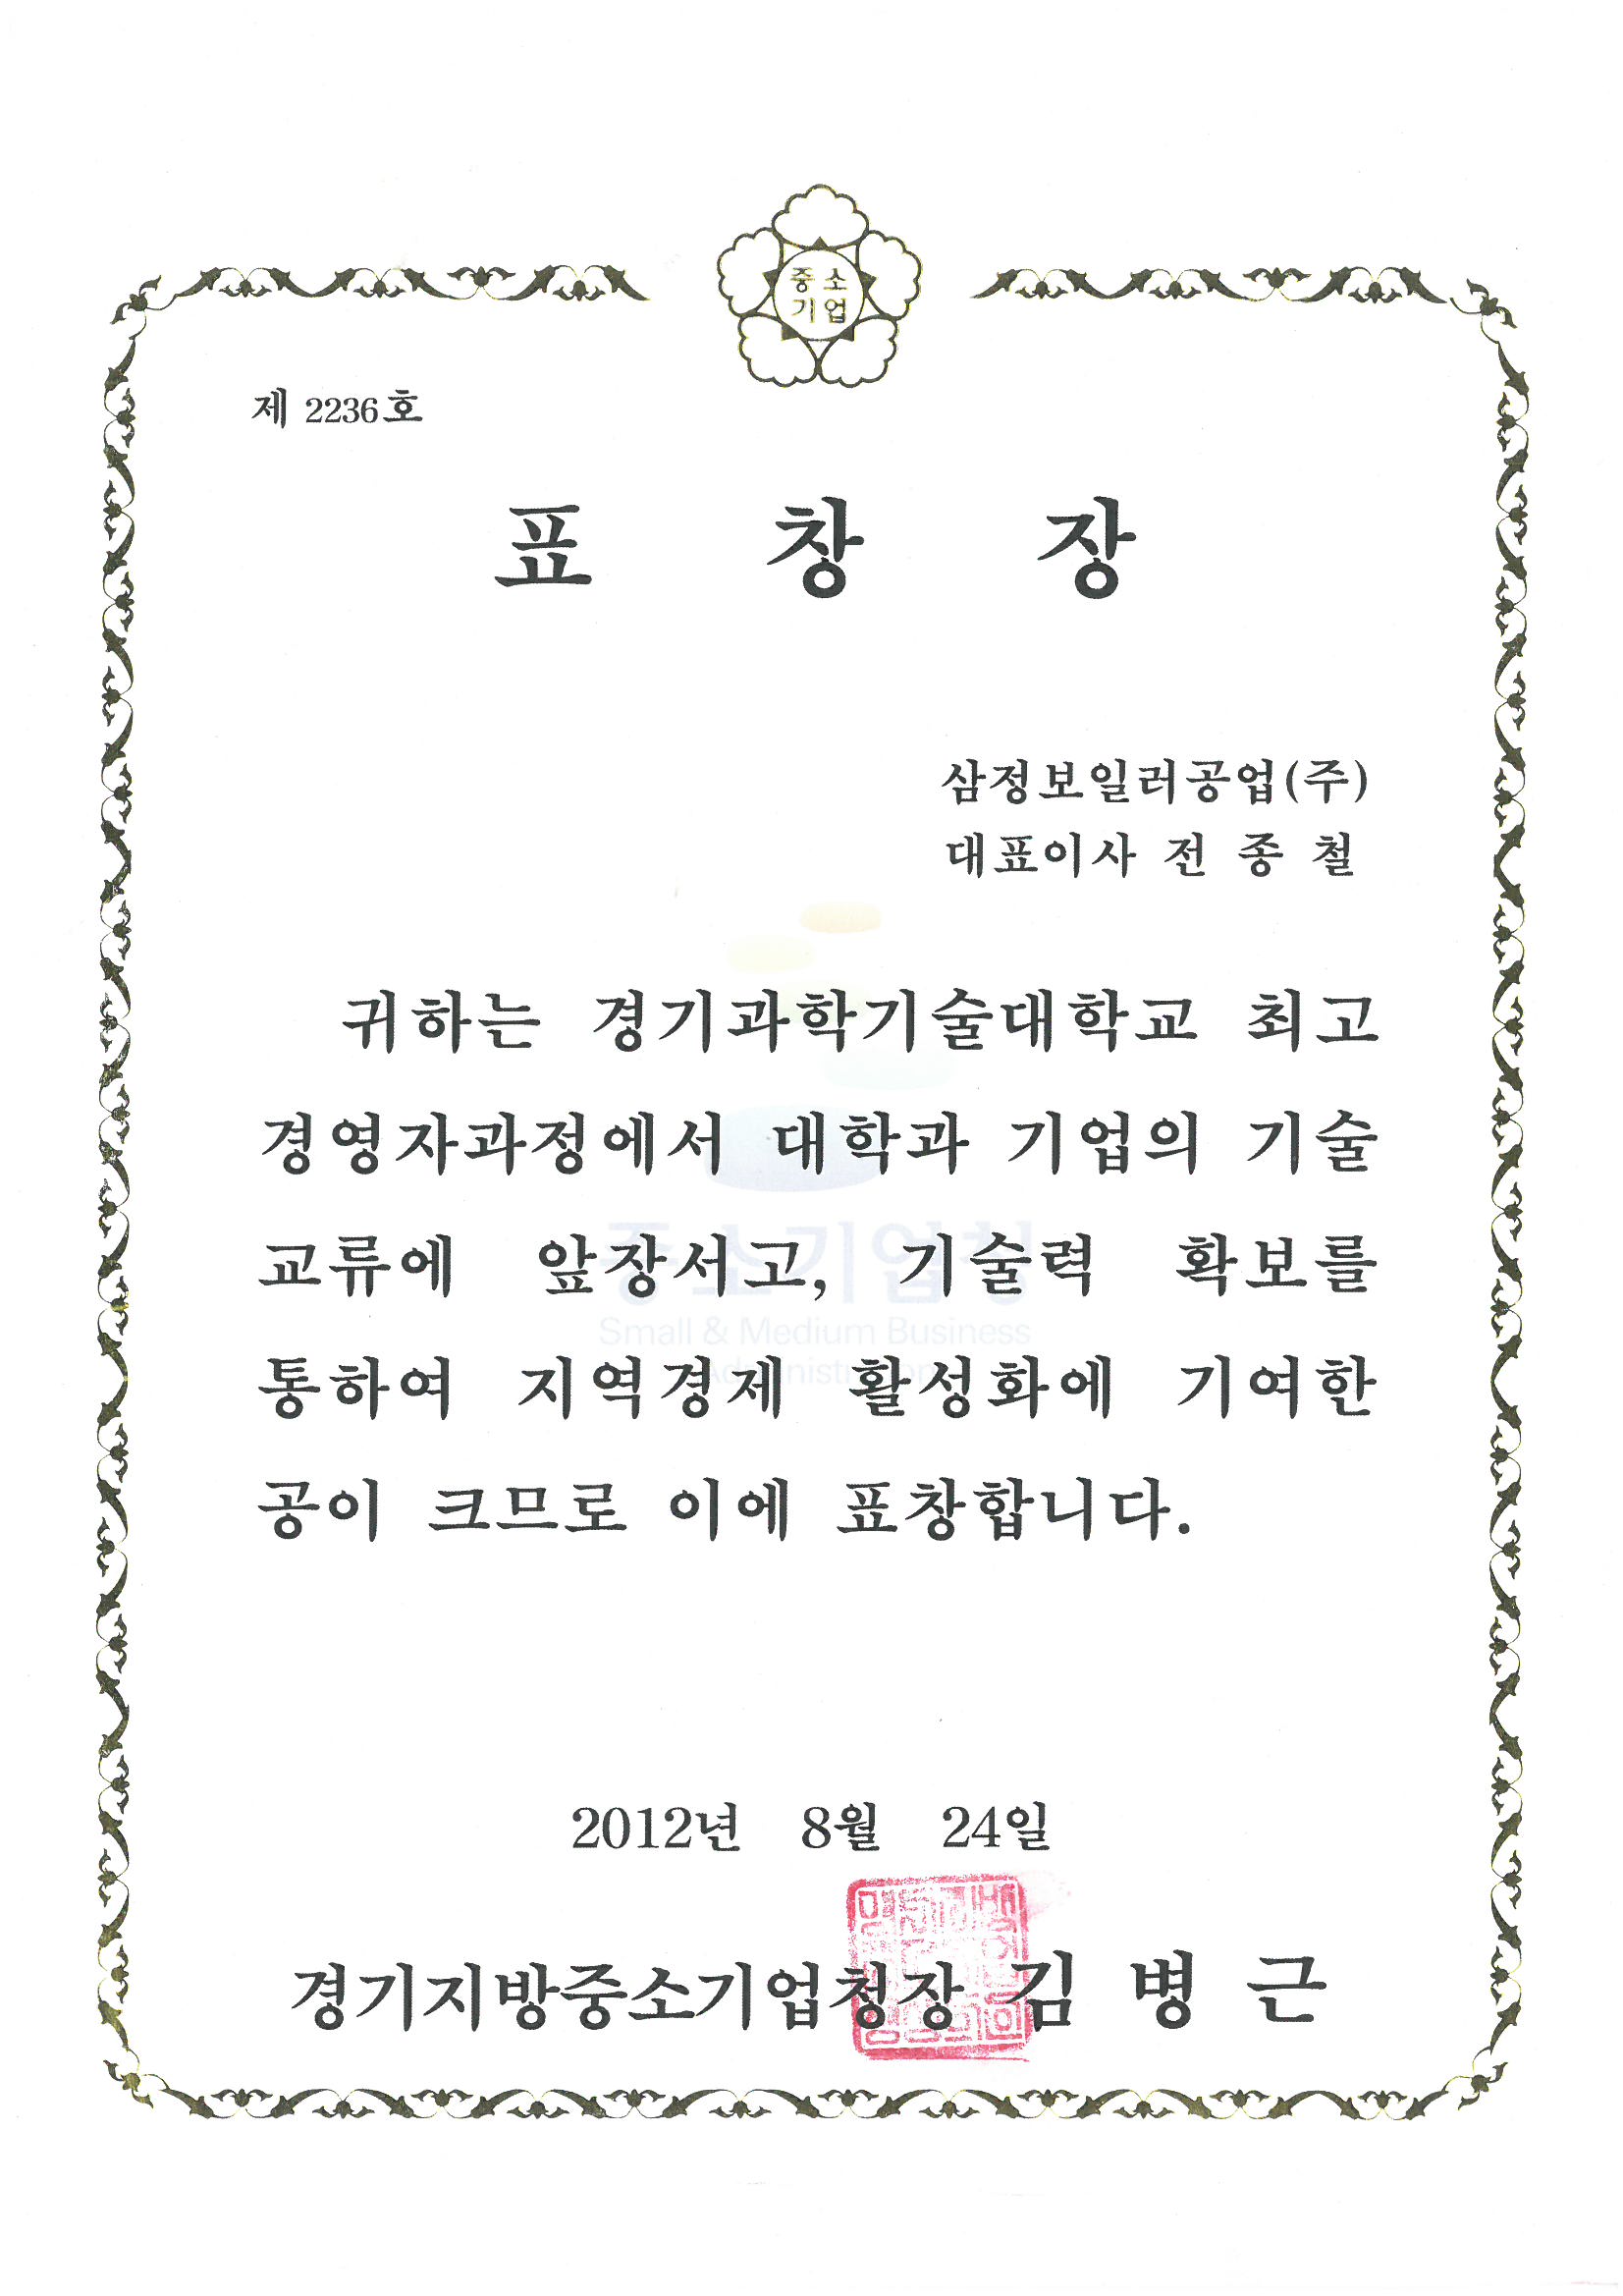 중소
기업
제 2236호
표 창 장
삼정보일러공업(주)
대표이사 전 종 철
귀하는 경기과학기술대학교 최고
경영자과정에서 대학과 기업의 기술
교류에 앞장서고, 기술력 확보를
통하여 지역경제 활성화에 기여한
공이 크므로 이에 표창합니다.
중소기업청
Small & Medium Business
Administration
2012년 8월 24일
경기지방중소기업청장 김 병 근